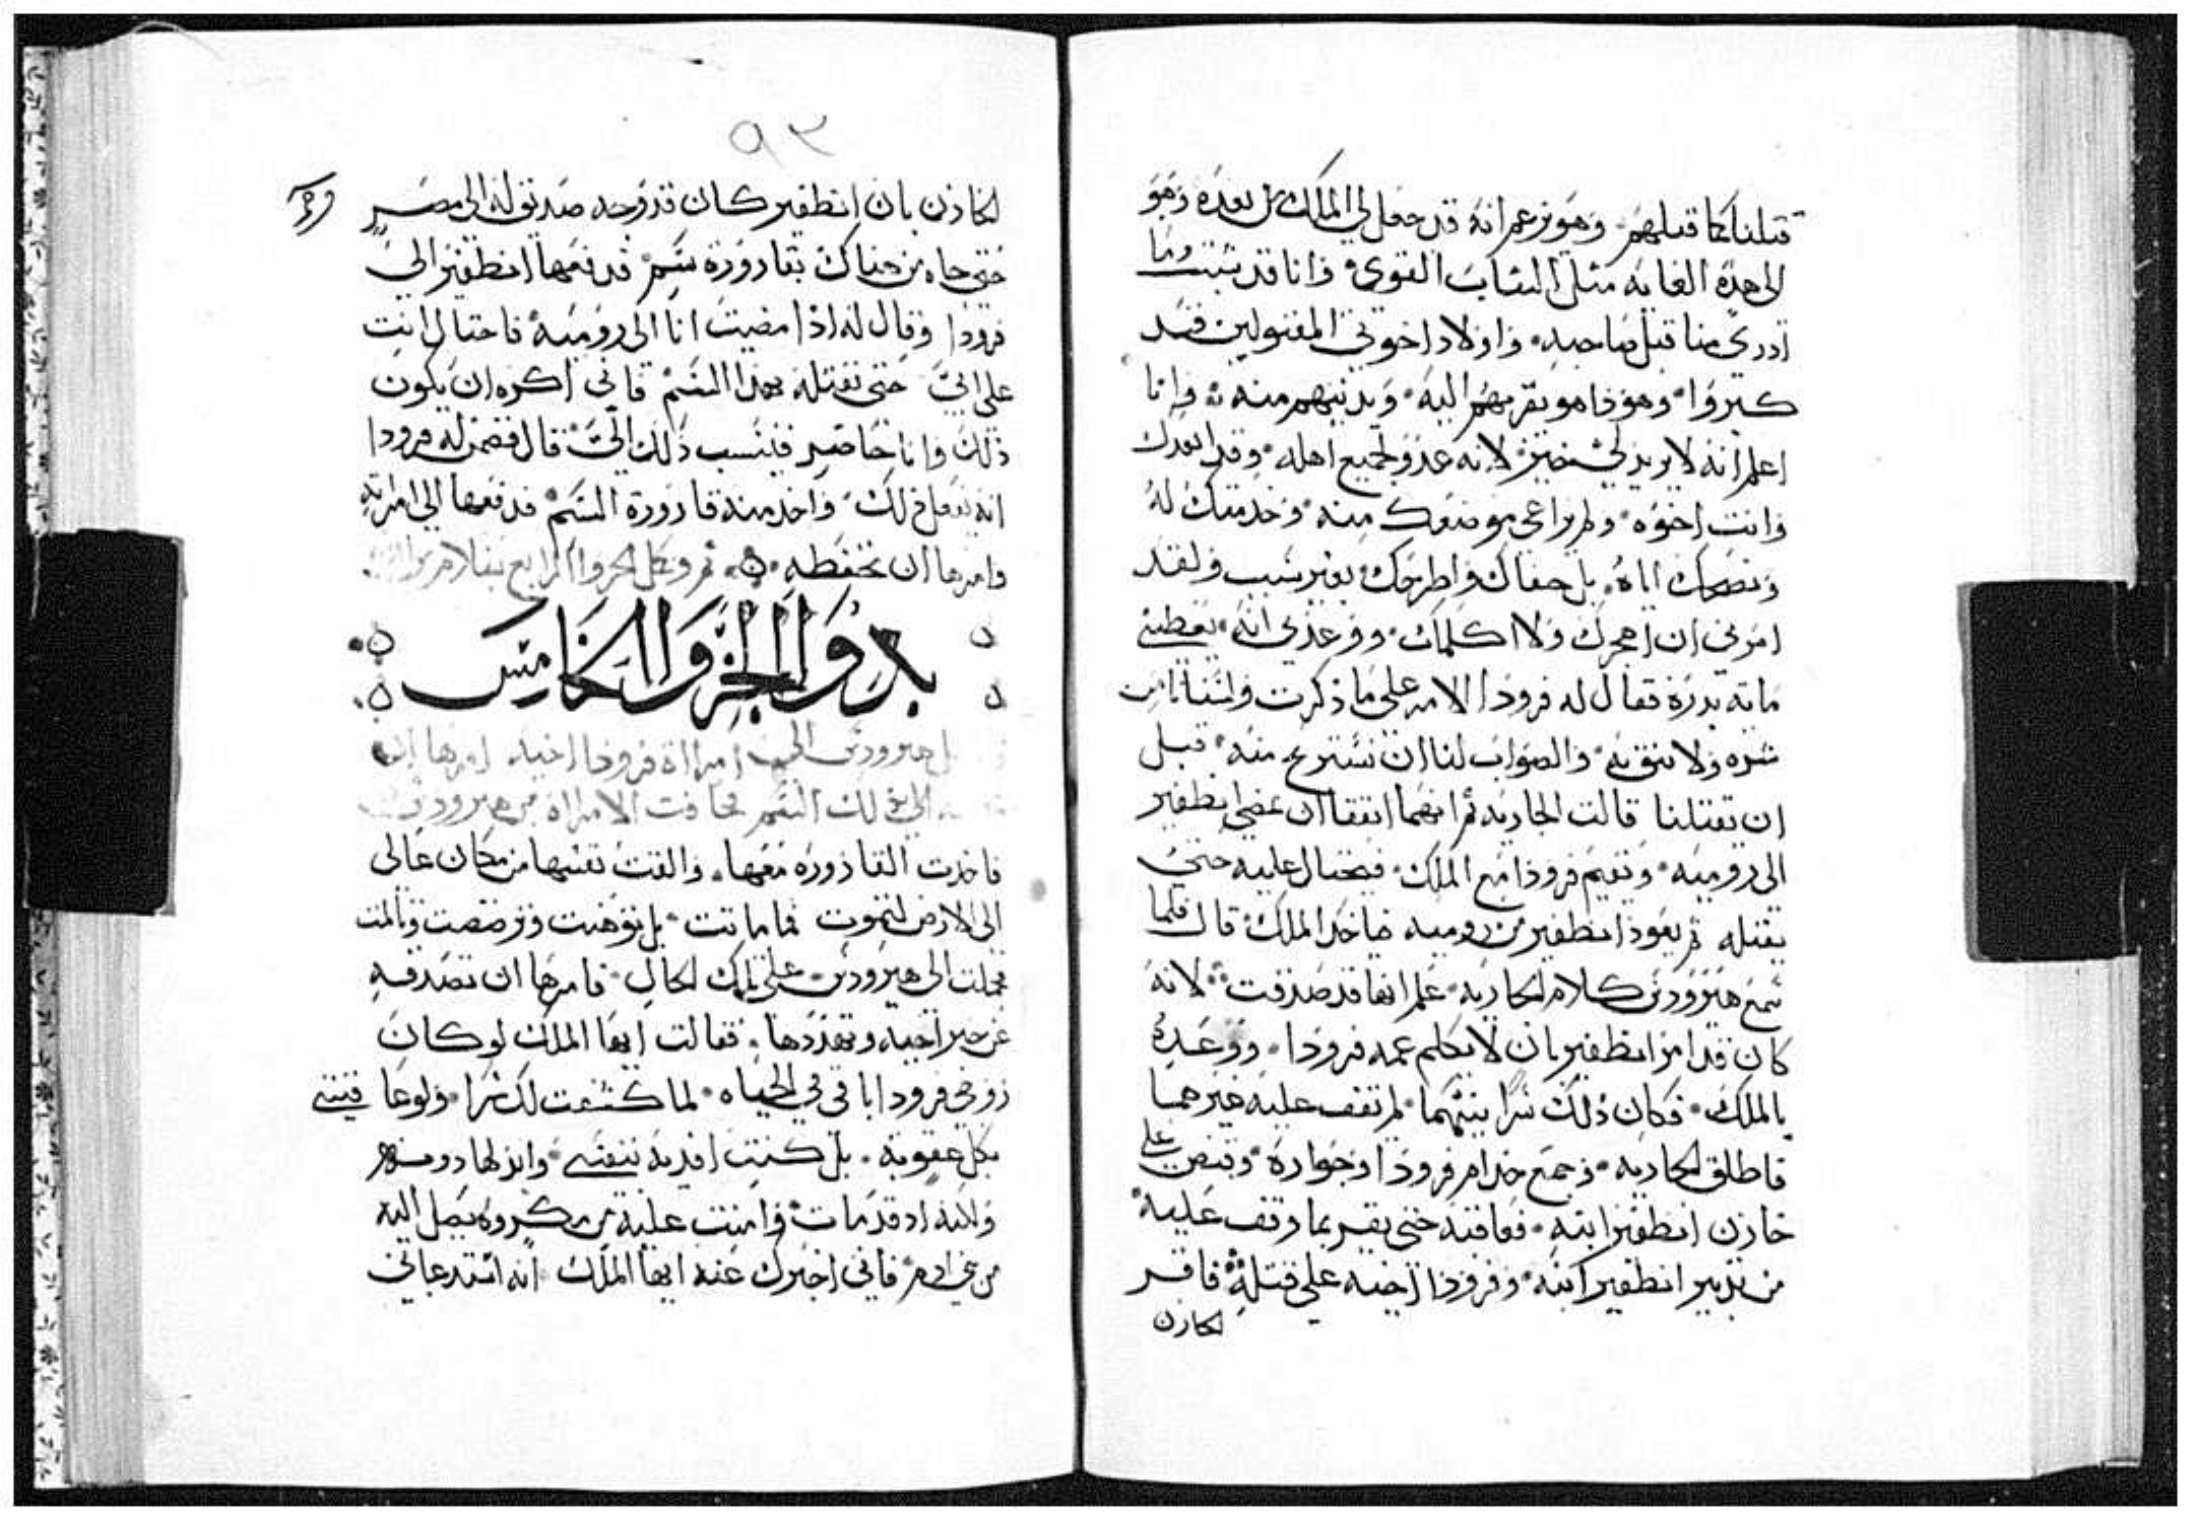 قتلنا كما قتلهم وهو يزعم انه قد جعل لي الملك من بعده وهو
الى هذه الغايه مثل الشاب القوي وانا قد شبت وما
ادري منا قبل صاحبه واولاد اخوتي المقتولين فقد
كبروا وهوذا هو يقربهم اليه ويدنيهم منه وانا
اعلم انه لا يريد لي خير لانه عدو لجميع اهله وقد ابعدك
وانت اخوه ولم يراعي موضعك منه وخدمتك له
ونصحك اياه بل جفاك واطرحك بغير سبب ولقد
امرني ان اهجرك ولا اكلمك ووعدني انه يعطيني
مايه بدره فقال له فرودا الامر على ما ذكرت ولسنا نامن
شره ولا نثق به والصواب لنا ان نستريح منه قبل
ان يقتلنا قالت الجاريه ثم انهما اتفقا ان يمضي انطفير
الى روميه ويقيم فرودا مع الملك فيحتال عليه حتى
يقتله ثم يعود انطفير من روميه فياخذ الملك قال فلما
سمع هيرودس كلام الجاريه علم انها قد صدقت لانه
كان قد امر انطفير بان لا يكلم عمه فرودا ووعده
بالملك فكان ذلك سرا بينهما لم تقف عليه غيرهما
فاطلق الجاريه وجمع خدام فرودا وجواره وقبض على
خازن انطفير ابنه فعاقبه حتى يقر بما وقف عليه
من تدبير انطفير ابنه وفرودا اخيه على قتله فاقر
الخازن
٩٣
الخازن بان انطفير كان قد وجه صديق له الى مصر
حتى جاه من هناك بقارورة سم فدفعها انطفير الى
فرودا وقال له اذا مضيت انا الى روميه فاحتال انت
على ابي حتى تقتله بهذا السم فاني اكره ان يكون
ذلك وانا حاضر فينسب ذلك الي قال فضمن له فرودا
انه يفعل ذلك واخذ منه قارورة السم فدفعها الى امراته
وامرها ان تحتفظ به ثم وكمل الجزو الرابع بسلام
بدو الجزو الخامس
هيرودس الى امراة فرودا اخيه امرها
الى ذلك السم فخافت الامراة من هيرودس
فاخذت القارورة معها والقت نفسها من مكان عالي
الى الارض لتموت فما ماتت بل توهنت وترضضت وتالمت
فحملت الى هيرودس على تلك الحال فامرها ان تصدقه
عن خبر اخيه وتهددها فقالت ايها الملك لو كان
زوجي فرودا باقي في الحياه لما كشفت لك سرا ولو عاقبتني
بكل عقوبة بل كنت افديه بنفسي
ولانه اذ قد مات وامنت عليه من مكروه يصل اليه
من بني ادم فاني اخبرك عنه ايها الملك انه استدعاني